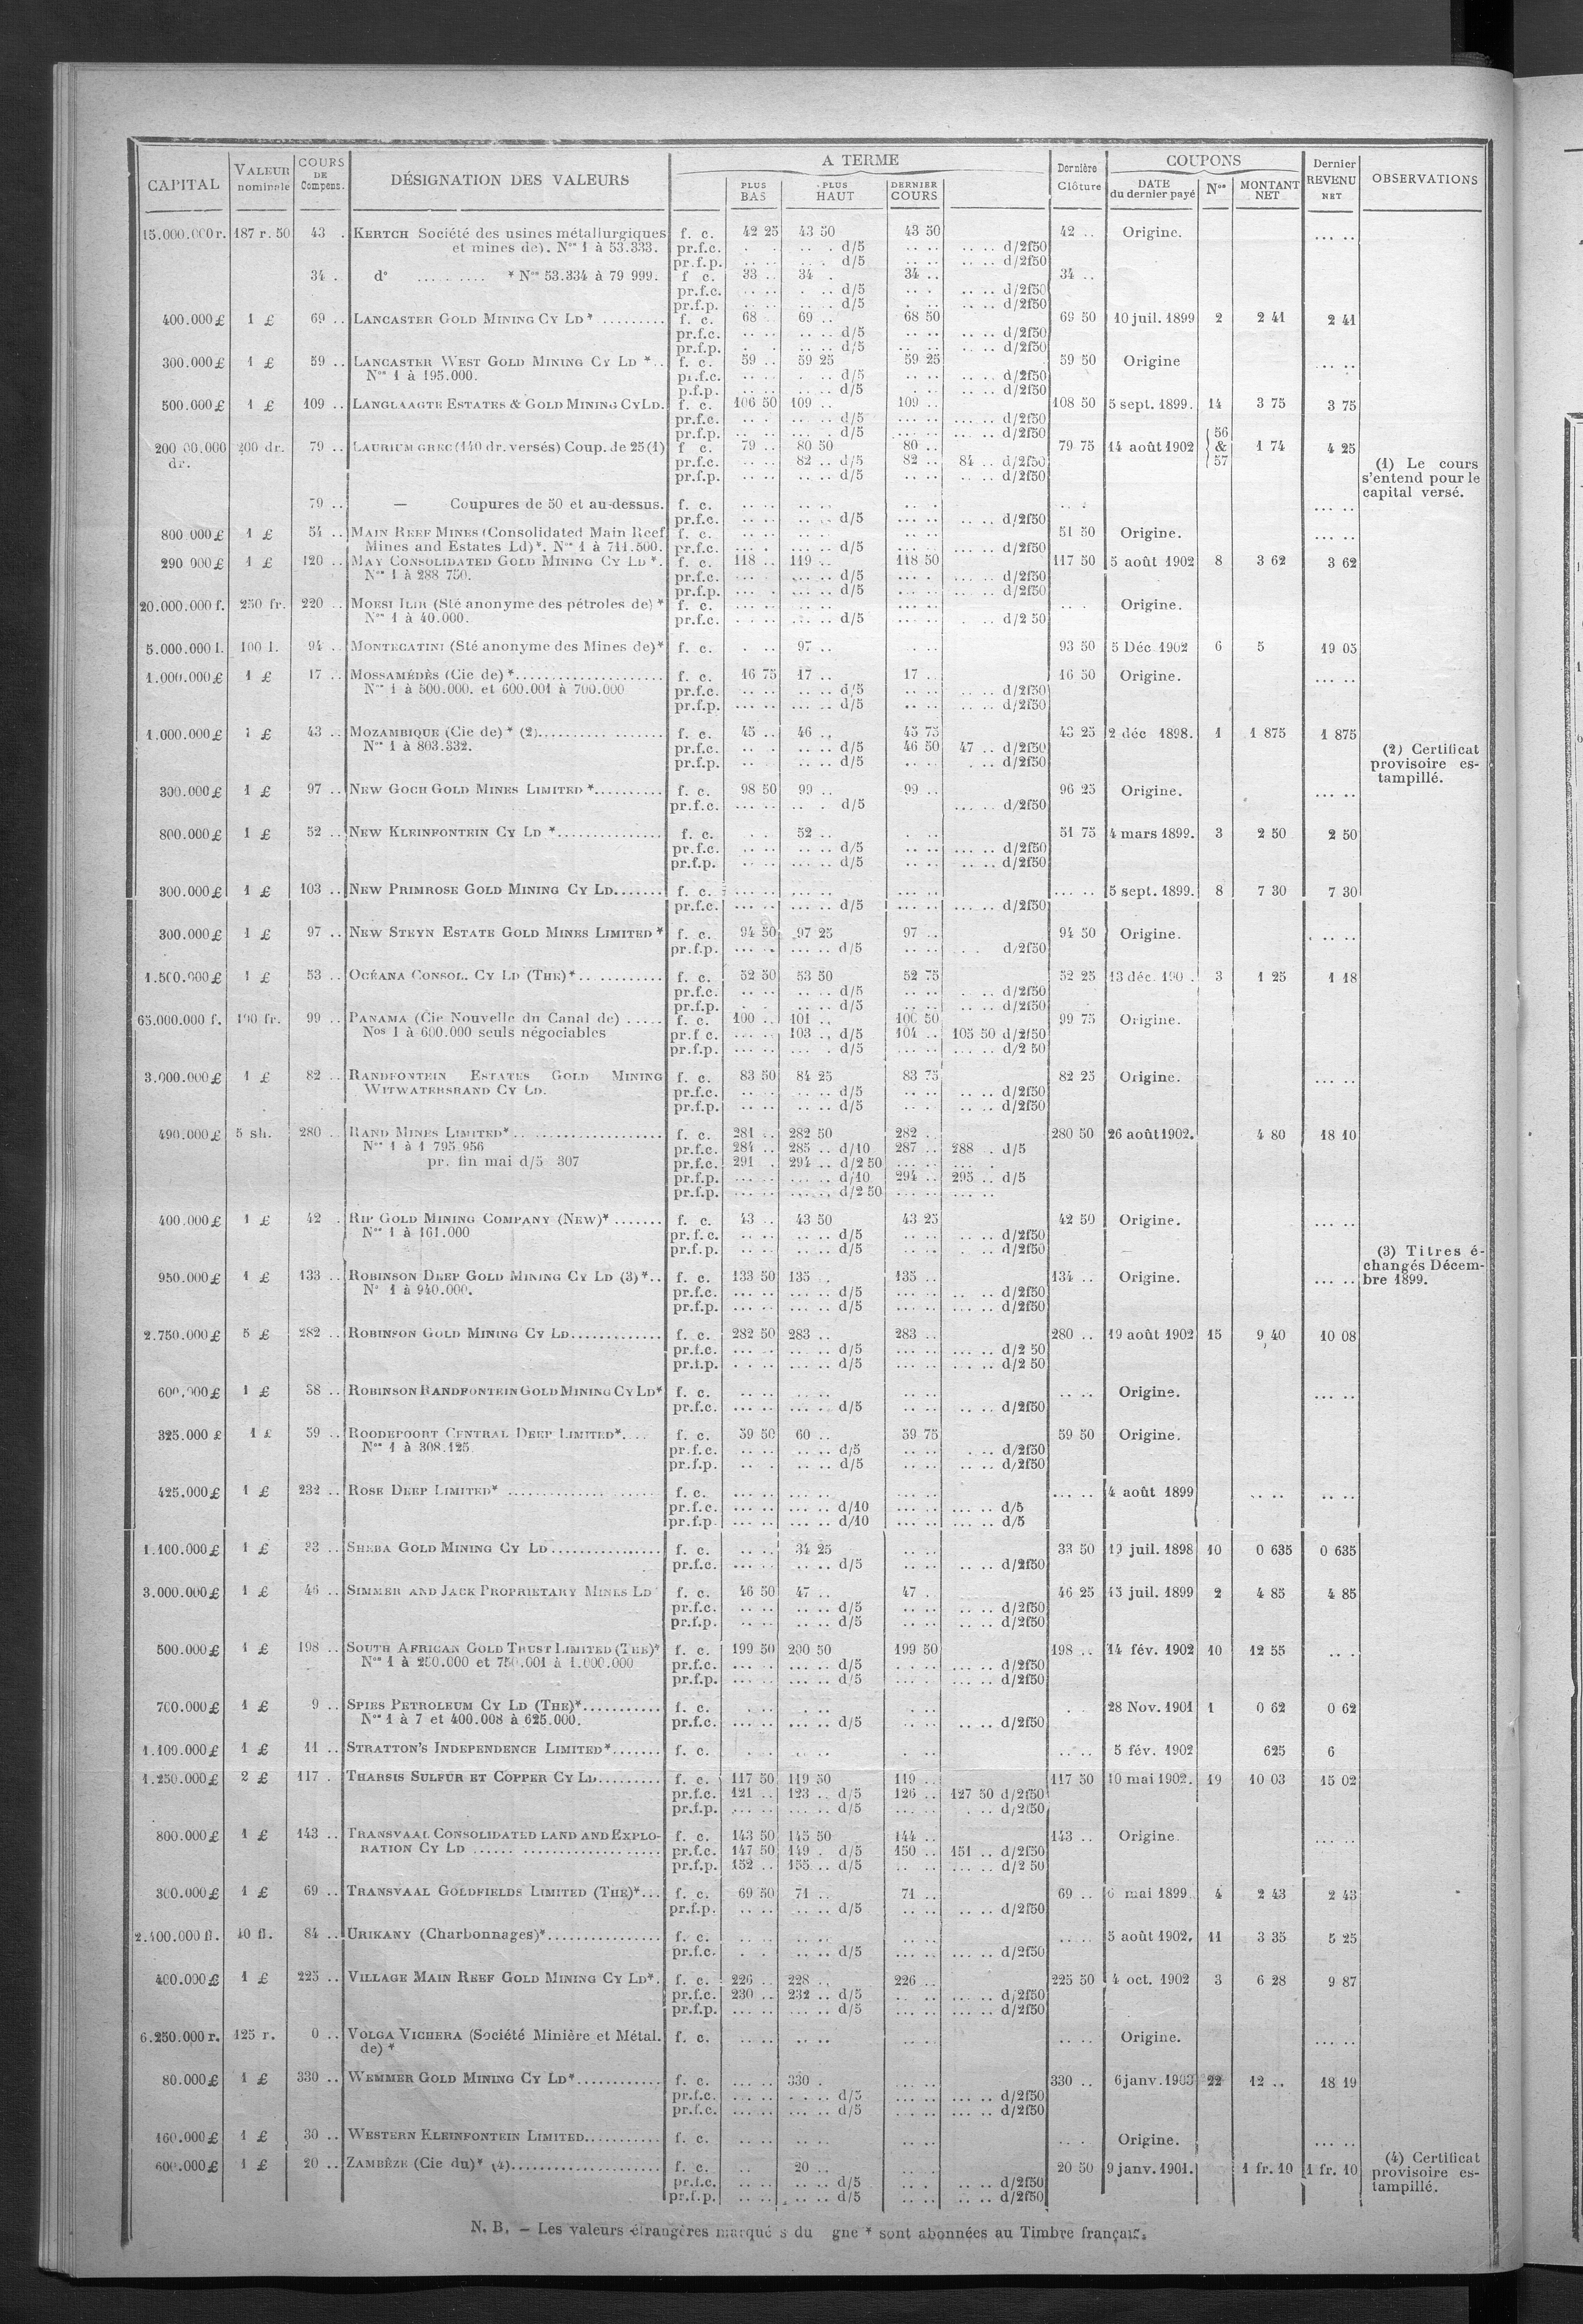 CAPITAL VALEUR nominale COURS DE Compens. DÉSIGNATION DES VALEURS A TERME Dernière Clôture COUPONS Dernier REVENU NET OBSERVATIONS
PLUS BAS PLUS HAUT DERNIER COURS DATE du dernier payé Nos MONTANT NET
15.000.000 r. 187 r. 50 43 . KERTCH Société des usines métallurgiques f. c. 42 25 43 50 43 50 42 .. Origine. ... ..
et mines de). Nos 1 à 53.333. pr.f.c. d/5 d/2f50
pr.f.p. d/5 d/2f50
34 . do .......... * Nos 53.334 à 79 999. f c. 33 .. 34 . 34 .. 34 ..
pr.f.c. d/5 d/2f50
pr.f.p. d/5 d/2f50
400.000 £ 1 £ 69 .. LANCASTER GOLD MINING CY LD * ......... f. c. 68 69 .. 68 50 69 50 10 juil. 1899 2 2 41 2 41
pr.f.c. d/5 d/2f50
pr.f.p. d/5 d/2f50
300.000 £ 1 £ 59 .. LANCASTER WEST GOLD MINING CY LD *.. f. c. 59 .. 59 25 59 25 59 50 Origine ... ..
Nos 1 à 195.000. pr.f.c. d/5 d/2f50
p.f.p. d/5 d/2f50
500.000 £ 1 £ 109 .. LANGLAAGTE ESTATES & GOLD MINING CY LD. f. c. 106 50 109 .. 109 .. 108 50 5 sept. 1899. 14 3 75 3 75
pr.f.c. d/5 d/2f50
pr.f.p. d/5 d/2f50
200 dr. 79 .. LAURIUM GREC (140 dr. versés) Coup. de 25 (1) f c. 79 .. 80 50 80 .. 79 75 14 août 1902 56 & 57 1 74 4 25
dr. pr.f.c. 82 .. d/5 82 .. 84 .. d/2f50 (1) Le cours
pr.f.p. d/5 d/2f50 s'entend pour le
capital versé.
79 .. — Coupures de 50 et au-dessus. f. c. ... ..
pr.f.c. d/5 d/2f50
800 000 £ 1 £ 54 .. MAIN REEF MINES (Consolidated Main Reef f. c. 51 50 Origine. ... ..
Mines and Estates Ld) *. Nos 1 à 711.500. pr.f.c. d/5 d/2f50
290 000 £ 1 £ 120 .. MAY CONSOLIDATED GOLD MINING CY LD *. f. c. 118 .. 119 .. 118 50 117 50 5 août 1902 8 3 62 3 62
Nos 1 à 288 750. pr.f.c. d/5 d/2f50
pr.f.p. d/5 d/2f50
20.000.000 f. 250 fr. 220 .. MORSI ILIR (Sté anonyme des pétroles de) * f. c. Origine.
Nos 1 à 40.000. pr.f.c. d/5 d/2 50
5.000.000 l. 100 l. 94 .. MONTECATINI (Sté anonyme des Mines de) * f. c. 97 .. 93 50 5 Déc 1902 6 5 19 05
1.000.000 £ 1 £ 17 .. MOSSAMÉDÈS (Cie de) *..................... f. c. 16 75 17 .. 17 .. 16 50 Origine. ... ..
Nos 1 à 500.000. et 600.001 à 700.000 pr.f.c. d/5 d/2f50
pr.f.p. d/5 d/2f50
1.000.000 £ 1 £ 43 .. MOZAMBIQUE (Cie de) * (2).......... ....... f. c. 45 .. 46 .. 45 75 43 25 2 déc 1898. 1 1 875 1 875
Nos 1 à 803.332. pr.f.c. d/5 46 50 47 .. d/2f50 (2) Certificat
pr.f.p. d/5 d/2f50 provisoire es-
tampillé.
300.000 £ 1 £ 97 .. NEW GOCH GOLD MINES LIMITED *.......... f. c. 98 50 99 .. 99 .. 96 25 Origine. ... ..
pr.f.c. d/5 d/2f50
800.000 £ 1 £ 52 .. NEW KLEINFONTEIN CY LD *............... f. c. 52 .. 51 75 4 mars 1899. 3 2 50 2 50
pr.f.c. d/5 d/2f50
pr.f.p. d/5 d/2f50
300.000 £ 1 £ 103 .. NEW PRIMROSE GOLD MINING CY LD....... f. c. 5 sept. 1899. 8 7 30 7 30
pr.f.c. d/5 d/2f50
300.000 £ 1 £ 97 .. NEW STEYN ESTATE GOLD MINES LIMITED * f. c. 94 50 97 25 97 .. 94 50 Origine. ... ..
pr.f.p. d/5 d/2f50
1.500.000 £ 1 £ 53 .. OCÉANA CONSOL. CY LD (THE) *............ f. c. 52 50 53 50 52 75 52 25 13 déc. 3 1 25 1 18
pr.f.c. d/5 d/2f50
pr.f.p. d/5 d/2f50
65.000.000 f. 100 fr. 99 .. PANAMA (Cie Nouvelle du Canal de) ..... f. c. 100 .. 101 .. 100 50 99 75 Origine.
Nos 1 à 600.000 seuls négociables pr.f c. 103 .. d/5 104 .. 105 50 d/2f50
pr.f.p. d/5 d/2 50
3.000.000 £ 1 £ 82 .. RANDFONTEIN ESTATES GOLD MINING f. c. 83 50 84 25 83 75 82 25 Origine. ... ..
WITWATERSRAND CY LD. pr.f.c. d/5 d/2f50
pr.f.p. d/5 d/2f50
490.000 £ 5 sh. 280 .. RAND MINES LIMITED *...................... f. c. 281 .. 282 50 282 .. 280 50 26 août 1902. 4 80 18 10
Nos 1 à 1 795 956 pr.f.c. 284 .. 285 .. d/10 287 .. 288 . d/5
pr. fin mai d/5 307 pr.f.c. 291 . 294 .. d/2 50
pr.f.p. d/10 294 .. 295 .. d/5
pr.f.p. d/2 50
400.000 £ 1 £ 42 . RIP GOLD MINING COMPANY (NEW) * ....... f. c. 43 .. 43 50 43 25 42 50 Origine. ... ..
Nos 1 à 161.000 pr.f.c. d/5 d/2f50
pr.f.p. d/5 d/2f50 (3) Titres é-
changés Décem-
950.000 £ 1 £ 133 .. ROBINSON DEEP GOLD MINING CY LD (3) *.. f. c. 133 50 135 . 135 .. 134 .. Origine. ... .. bre 1899.
No 1 à 940.000. pr.f.c. d/5 d/2f50
pr.f.p. d/5 d/2f50
2.750.000 £ 5 £ 282 .. ROBINSON GOLD MINING CY LD............. f. c. 282 50 283 .. 283 .. 280 .. 19 août 1902 15 9 40 10 08
pr.f.c. d/5 d/2 50
pr.f.p. d/5 d/2 50
600.000 £ 1 £ 58 .. ROBINSON RANDFONTEIN GOLD MINING CY LD * f. c. Origine. ... ..
pr.f.c. d/5 d/2f50
325.000 £ 1 £ 59 .. ROODEPOORT CENTRAL DEEP LIMITED *.... f. c. 59 50 60 .. 59 75 59 50 Origine.
Nos 1 à 308.125 pr.f.c. d/5 d/2f50
pr.f.p. d/5 d/2f50
425.000 £ 1 £ 232 .. ROSE DEEP LIMITED * ..................... f. c. 4 août 1899
pr.f.c. d/10 d/5
pr.f.p. d/10 d/5
1.100.000 £ 1 £ 33 .. SHEBA GOLD MINING CY LD................ f. c. 34 25 33 50 19 juil. 1898 10 0 635 0 635
pr.f.c. d/5 d/2f50
3.000.000 £ 1 £ 46 .. SIMMER AND JACK PROPRIETARY MINES LD f. c. 46 50 47 .. 47 .. 46 25 13 juil. 1899 2 4 85 4 85
pr.f.c. d/5 d/2f50
pr.f.p. d/5 d/2f50
500.000 £ 1 £ 198 .. SOUTH AFRICAN GOLD TRUST LIMITED (THE) * f. c. 199 50 200 50 199 50 198 .. 14 fév. 1902 10 12 55
Nos 1 à 250.000 et 750.001 à 1.000.000 pr.f.c. d/5 d/2f50
pr.f.p. d/5 d/2f50
700.000 £ 1 £ 9 .. SPIES PETROLEUM CY LD (THE) *........... f. c. 28 Nov. 1901 1 0 62 0 62
Nos 1 à 7 et 400.008 à 625.000. pr.f.c. d/5 d/2f50
1.100.000 £ 1 £ 11 .. STRATTON'S INDEPENDENCE LIMITED *....... f. c. 5 fév. 1902 625 6
1.250.000 £ 2 £ 117 . THARSIS SULFUR ET COPPER CY LD......... f. c. 117 50 119 50 119 .. 117 50 10 mai 1902. 19 10 03 15 02
pr.f.c. 121 .. 123 .. d/5 126 .. 127 50 d/2f50
pr.f.p. d/5 d/2f50
800.000 £ 1 £ 143 .. TRANSVAAL CONSOLIDATED LAND AND EXPLO- f. c. 143 50 145 50 144 .. 143 .. Origine. ... ..
RATION CY LD ...... .................. pr.f.c. 147 50 149 . d/5 150 .. 151 .. d/2f50
pr.f.p. 152 .. 155 .. d/5 d/2 50
300.000 £ 1 £ 69 .. TRANSVAAL GOLDFIELDS LIMITED (THE) *... f. c. 69 50 71 .. 71 .. 69 .. 6 mai 1899 4 2 43 2 43
pr.f.p. d/5 d/2f50
2.400.000 fl. 40 fl. 84 .. URIKANY (Charbonnages) *................ f. c. 5 août 1902. 11 3 35 5 25
pr.f.c. d/5 d/2f50
400.000 £ 1 £ 225 .. VILLAGE MAIN REEF GOLD MINING CY LD *. f. c. 226 .. 228 .. 226 .. 225 50 4 oct. 1902 3 6 28 9 87
pr.f.c. 230 .. 232 .. d/5 d/2f50
pr.f.p. d/5 d/2f50
6.250.000 r. 125 r. 0 .. VOLGA VICHERA (Société Minière et Métal. f. c. Origine. ... ..
de) *
80.000 £ 1 £ 330 .. WEMMER GOLD MINING CY LD *............ f. c. 330 . 330 .. 6 janv. 1903 22 12 .. 18 19
pr.f.c. d/5 d/2f50
pr.f.c. d/5 d/2f50
160.000 £ 1 £ 30 .. WESTERN KLEINFONTEIN LIMITED........... f. c. Origine. ... ..
600.000 £ 1 £ 20 .. ZAMBÈZE (Cie du) * (4)..................... f. c. 20 .. 20 50 9 janv. 1901. 1 fr. 10 1 fr. 10 (4) Certificat
pr.f.c. d/5 d/2f50 provisoire es-
pr.f.p. d/5 d/2f50 tampillé.
N. B. — Les valeurs étrangères marqué s du gne * sont abonnées au Timbre français.